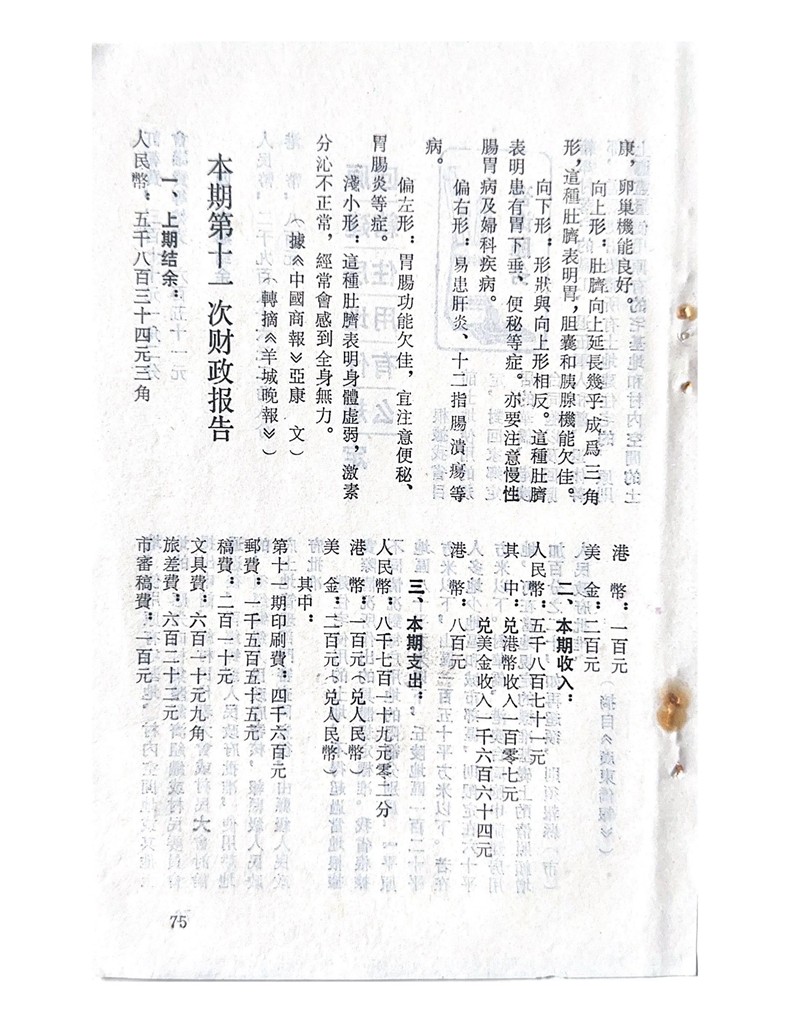 康，卵巢機能良好。
向上形：肚臍向上延長幾乎成爲三角
形，這種肚臍表明胃，胆囊和胰腺機能欠佳。
向下形：形狀與向上形相反。這種肚臍
表明患有胃下垂、便秘等症。亦要注意慢性
腸胃病及婦科疾病。
偏右形：易患肝炎、十二指腸潰瘍等
病。
偏左形：胃腸功能欠佳，宜注意便秘、
胃腸炎等症。
淺小形：這種肚臍表明身體虛弱，激素
分沁不正常，經常會感到全身無力。
（據《中國商報》亞康　文）
（轉摘《羊城晚報》）
本期第十一次财政报告
一、上期结余：
人民幣：五千八百三十四元三角
港　幣：一百元
美　金：二百元
二、本期收入：
人民幣：五千八百七十一元
其　中：兑港幣收入一百零七元
兑美金收入一千六百六十四元
港　幣：八百元
三、本期支出：
人民幣：八千七百一十九元零二分
港　幣：一百元（兑人民幣）
美　金：二百元（兑人民幣）
其中：
第十一期印刷費：四千六百元
郵費：一千五百五十五元
稿費：二百一十元
文具費：六百一十元九角
旅差費：六百二十三元
市審稿費：一百元
75